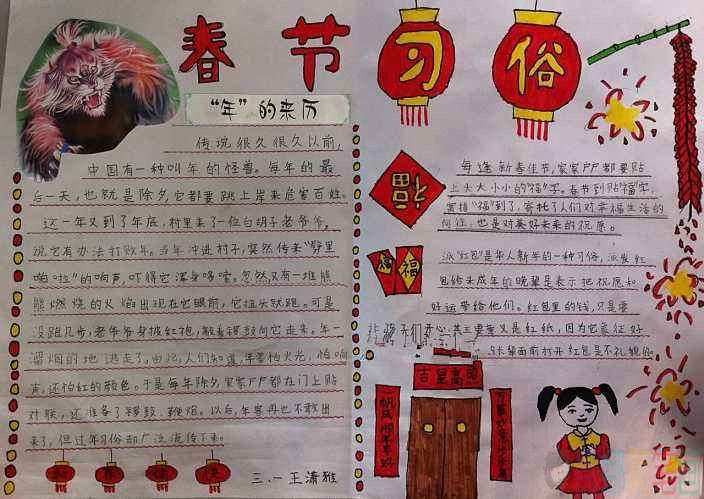 春节习俗
“年”的来历
传说很久很久以前,
中国有一种叫年的怪兽。每年的最
后一天,也就是除夕,它都要跳上岸来危害百姓。
这一年又到了年底,村里来了一位白胡子老爷爷,
说它有办法打败年。当年冲进村子,突然传来“劈里
啪啦”的响声,吓得它浑身哆嗦。忽然,又有一堆熊
熊燃烧的火焰出现在它眼前,它扭头就跑。可是
没跑几步,老爷爷身披红袍,敲着锣鼓向它走来。年一
溜烟的地逃走了。由此,人们知道,年害怕火光,怕响
声,还怕红的颜色。于是每年除夕,家家户户都在门上贴
对联,还准备了锣鼓、鞭炮。以后,年再也不敢出
来了,但过年习俗却广泛流传下来。
三.一王潇雅
福
每逢新春佳节,家家户户都要贴
上大大小小的“福”字。春节到贴“福”字,
寄托了人们对幸福生活的
向往,也是对美好未来的祝愿。
福
派“红包”是华人新年的一种习俗,派发红
包给未成年的晚辈是表示把祝愿和
好运带给他们。红包里的钱,只是要
让孩子们开心,其主要意义是红纸,因为它象征好
长辈面前打开红包是不礼貌的。
吉星高照
一帆风顺年年好
万事如意步步高